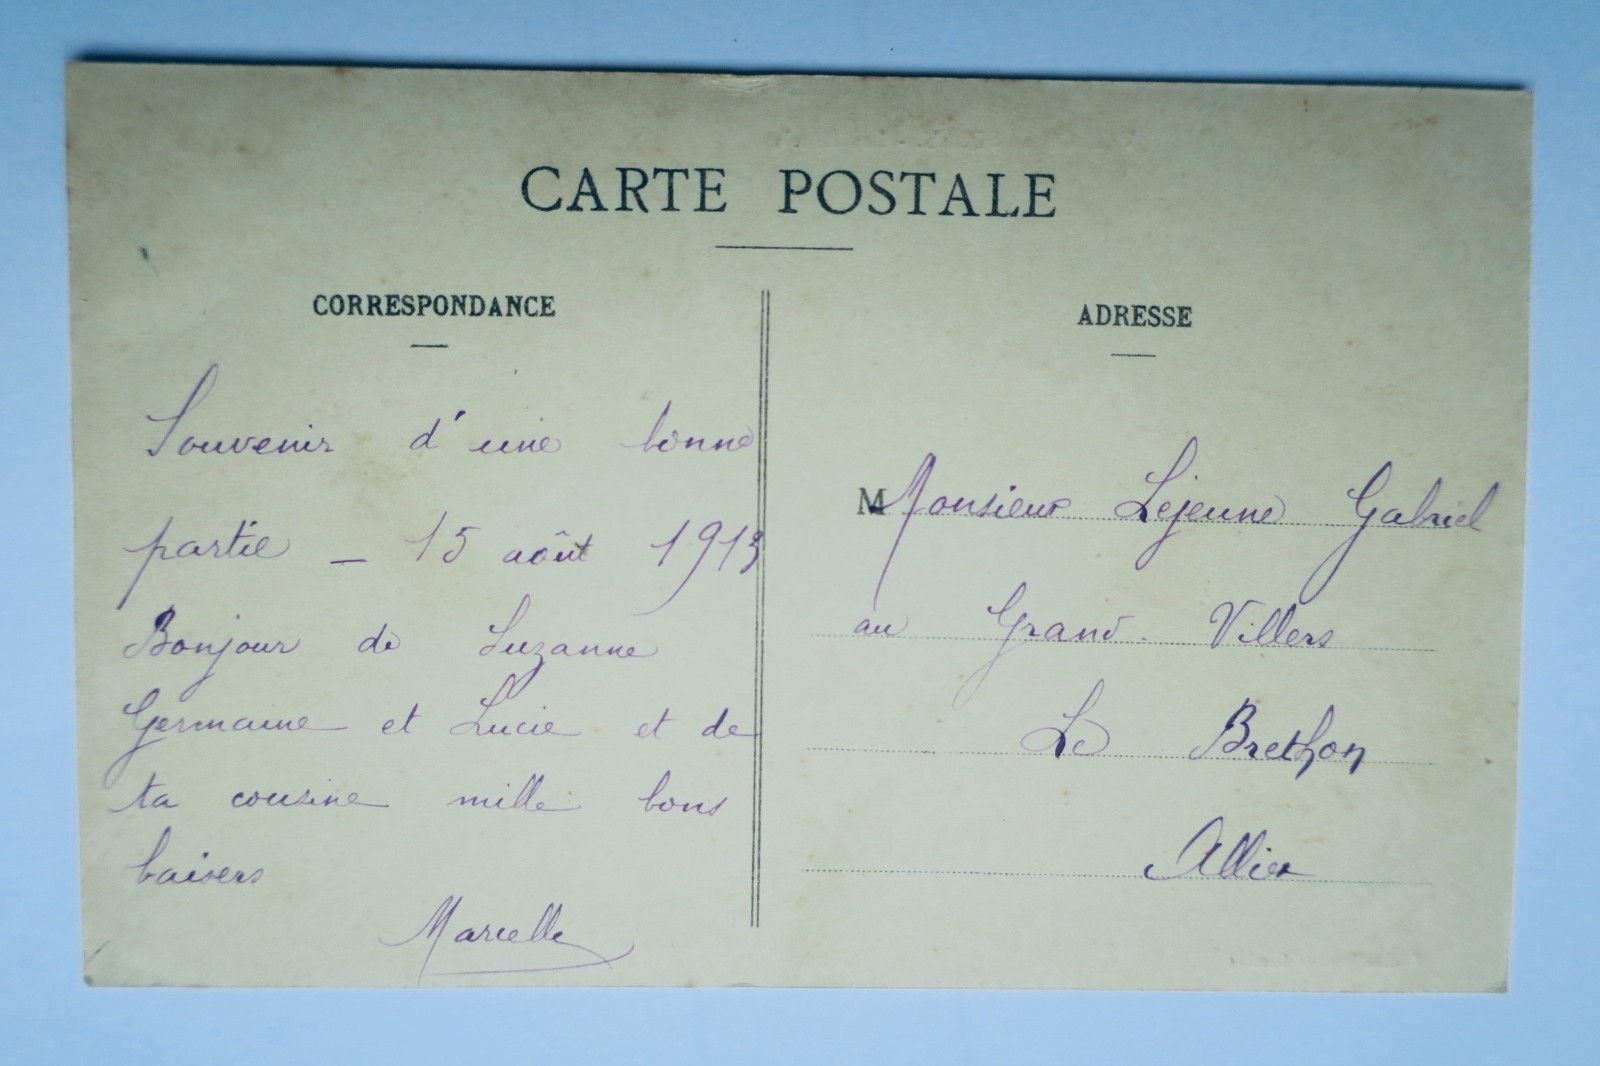 CARTE POSTALE
CORRESPONDANCE
Souvenir d'une bonne
partie – 15 août 1913
Bonjour de Suzanne
Germaine et Lucie et de
ta cousine mille bons
baisers
Marcelle
ADRESSE
M Monsieur Lejeune Gabriel
au Grand Villers
Le Brethon
Allier